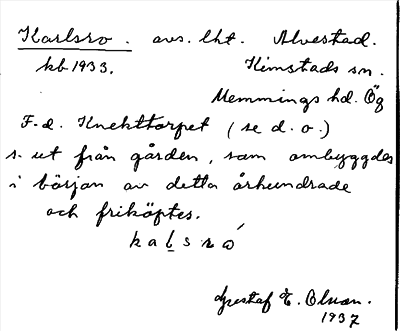 Karlsro. avs. lht. Alvestad.
kb 1933. Kimstads sn.
Memmings hd. Ög
F.d. Knekttorpet (se d.o.)
s. ut från gården, som ombyggdes
i början av detta århundrade
och friköptes.
kalsró
Gustaf E. Olson.
1937